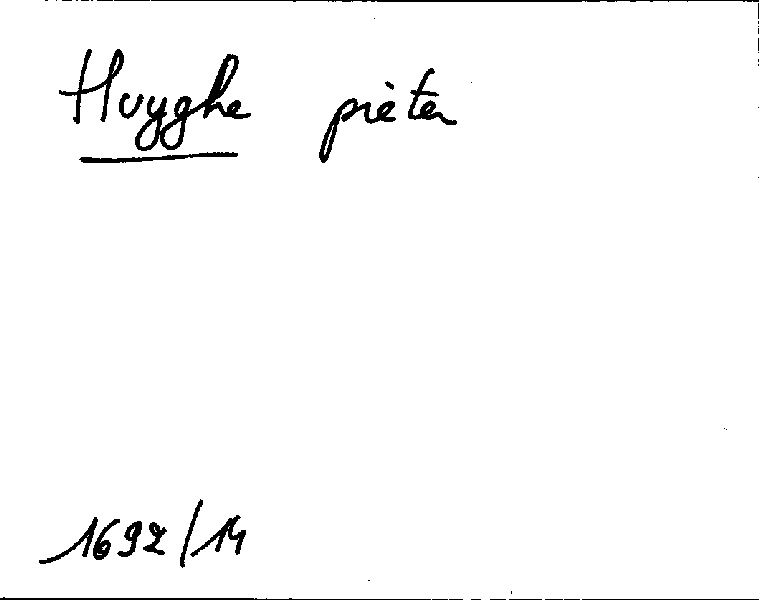 Huyghe pieter
1692/14